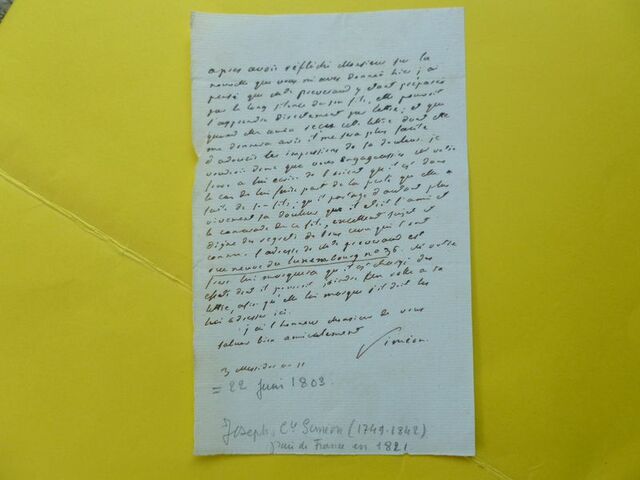 apres avoir réfléchi Monsieur sur la
nouvelle que vous m'avez donnée hier j'ai
pensé que made preverand y étant préparée
par le long silence de son fils, elle pouvoit
l'apprendre directement par lettre; et que
quand elle aura reçu cette lettre dont elle
me donnera avis il me sera plus facile
d'adoucir les impressions de la douleur. je
voudrois donc que vous engageassiez Mr votre
frere à lui écrire de l'orient qu'il est dans
le cas de lui faire part de la perte qu'elle a
faite de son fils; qu'il partage d'autant plus
vivement sa douleur que il étoit l'ami et
le camarade de ce fils, excellent sujet et
digne des regrets de tous ceux qui l'ont
connu. l'adresse de made preverand est
rue neuve du Luxembourg no 36. Mr votre
frere lui marquera qu'il est chargé des
effets dont il pourroit joindre l'en
lettre, afin qu'elle lui marque s'il doit les
lui adresser ici.
j'ai l'honneur Monsieur de vous
saluer bien amicalement
Siméon.
3 Messidor an 11
= 22 Juin 1803.
Joseph, Cte Simeon (1749-1842)
pair de France en 1821